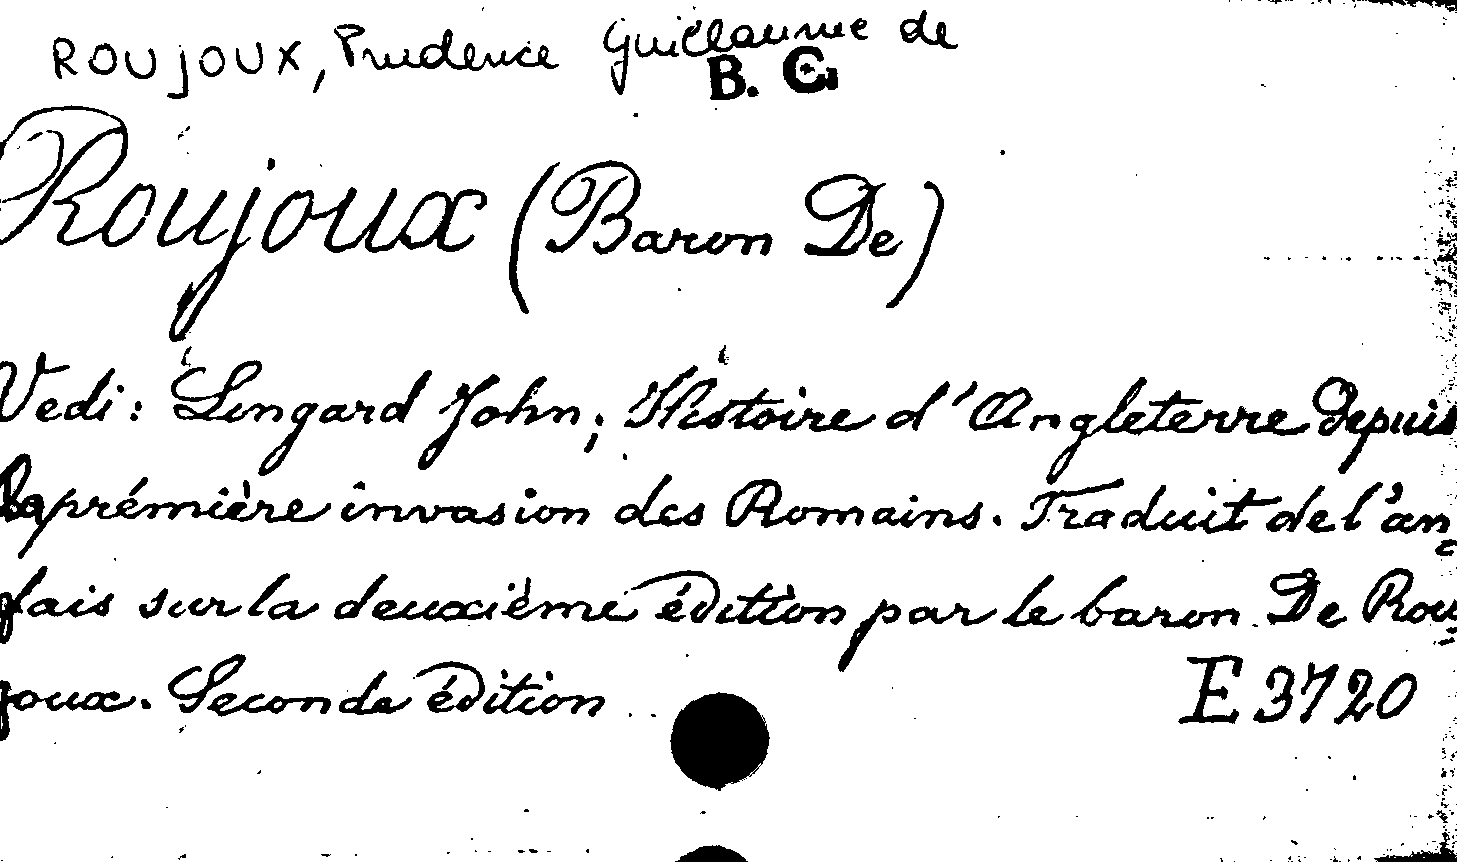 ROUJOUX, Prudence Guillaume de
B. C.
Roujoux (Baron De)
Vedi: Lingard John; Histoire d'Angleterre depuis
la prémière invasion des Romains. Traduit de l'an-
glais sur la deuxième édition par le baron De Rou=
joux. Seconde édition
E 3720